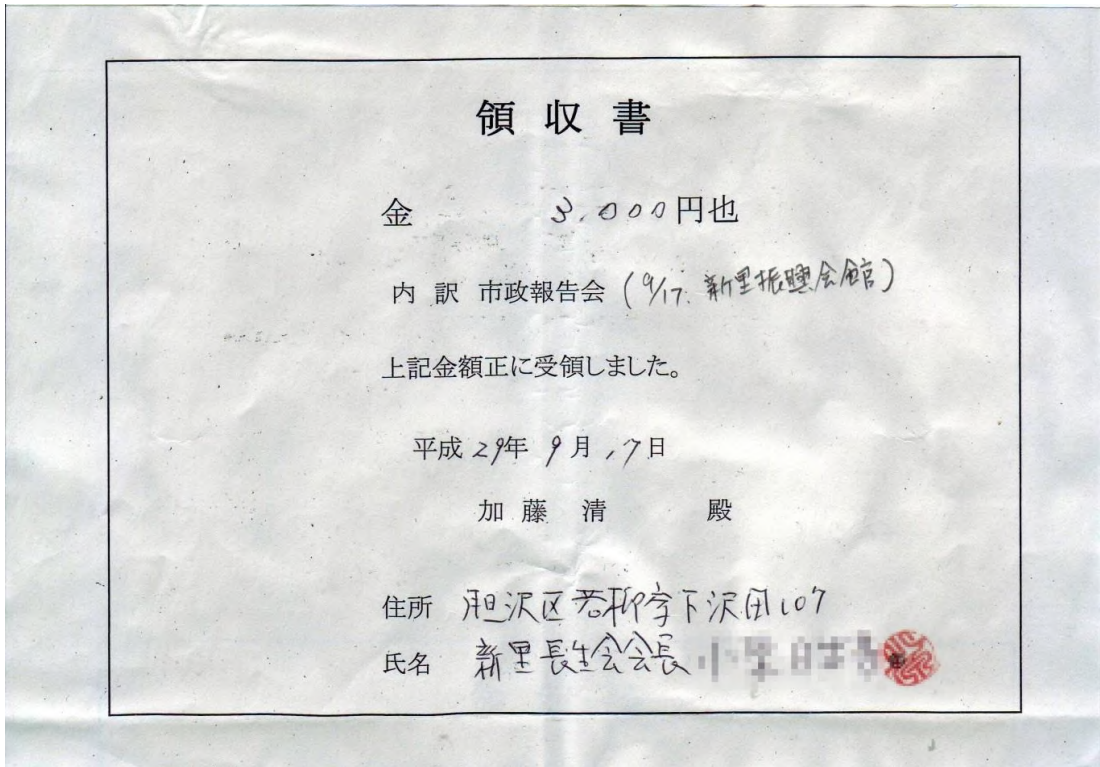 領収書
金 3,000円也
内訳 市政報告会 (9/17. 新里振興会館)
上記金額正に受領しました。
平成29年9月17日
加藤 清 殿
住所 胆沢区若柳字下沢田107
氏名 新里長生会会長